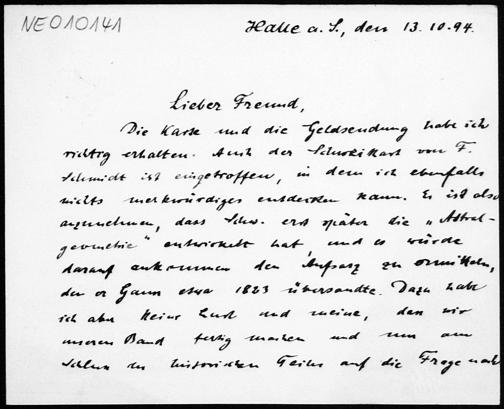 NE010141
Halle a. S., den 13.10.94.
Lieber Freund,
Die Karte und die Geldsendung habe ich
richtig erhalten. Auch der Brief von F.
Schmidt ist eingetroffen, in dem ich ebenfalls
nichts merkwürdiges entdecken kann. Es ist also
anzunehmen, dass Schw. erst später die „Astral-
geometrie" entwickelt hat, und es würde
darauf ankommen den Aufsatz zu ermitteln,
den er Gauss etwa 1823 übersandte. Dazu habe
ich aber keine Lust und meine, dass wir
unseren Band fertig machen und nun am
Schluss des historischen Teiles auf die Frage nach